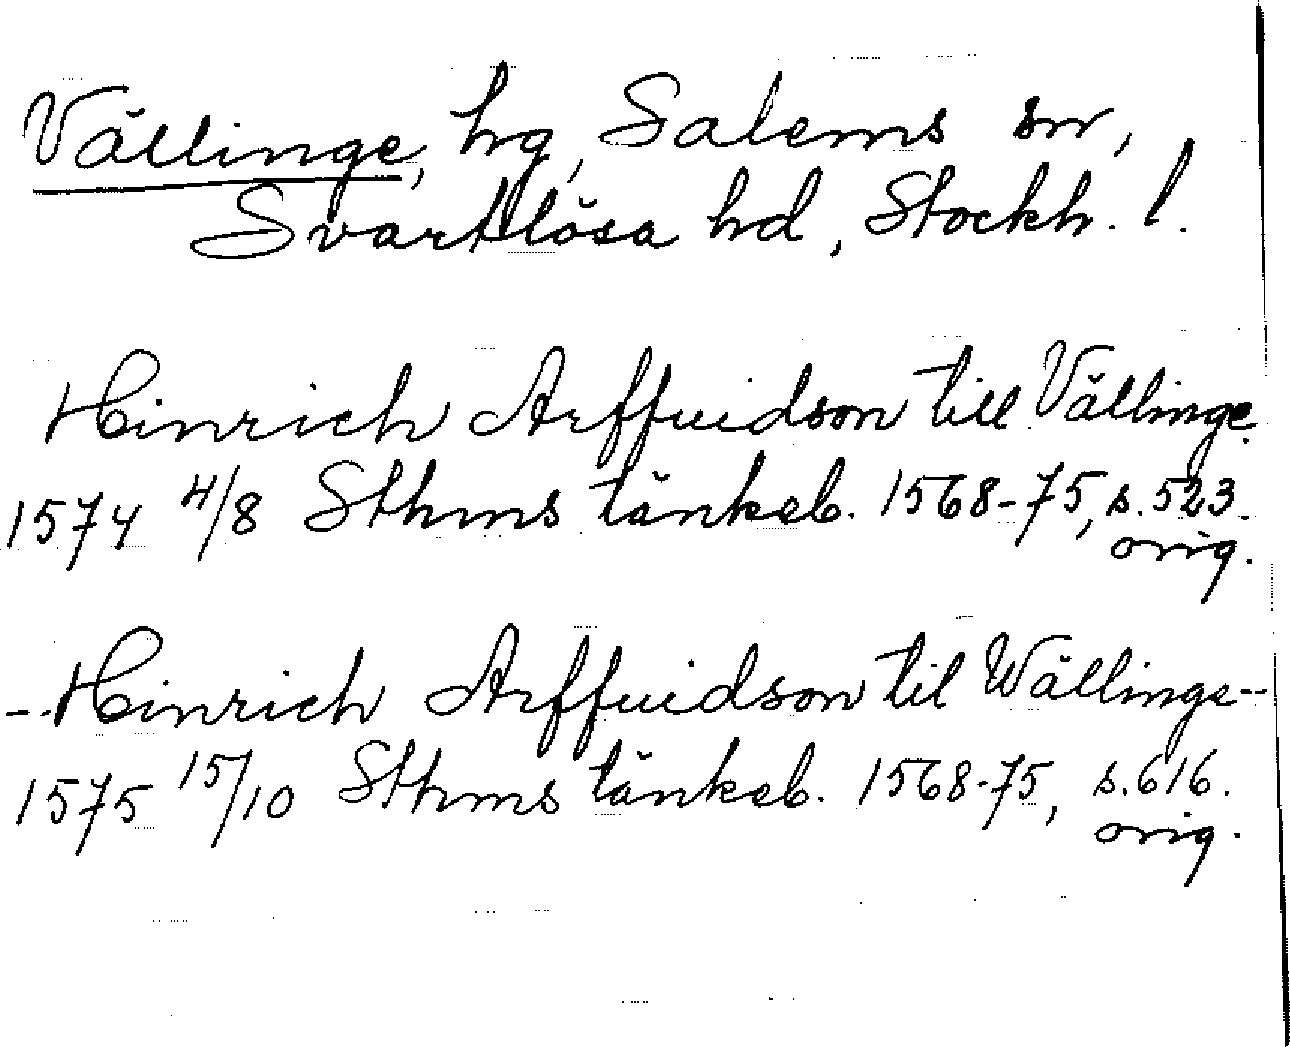 Vällinge, hg, Salems sn,
Svartlösa hd, Stockh. l.
Hinrich Arffuidson till Vällinge.
1574 4/8 Sthms tänkeb. 1568-75, s. 523.
orig.
-- Hinrich Arffuidson til Wällinge --
1575 15/10 Sthms tänkeb. 1568-75, s. 616.
orig.